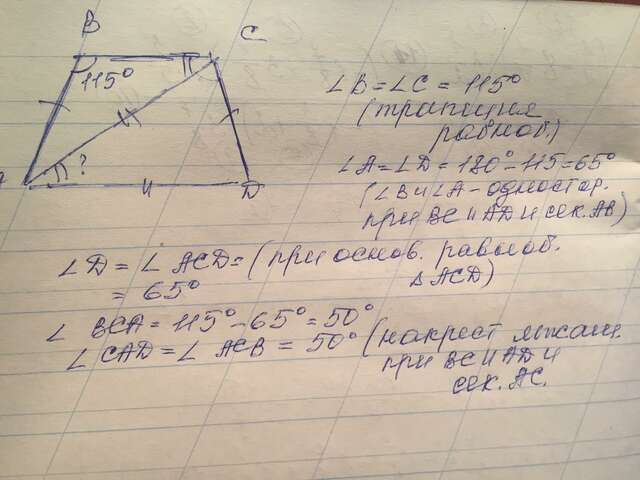 B
C
115°
?
D
∠B = ∠C = 115°
(трапеция
равноб.)
∠A = ∠D = 180° - 115 = 65°
(∠B и ∠A - одностор.
при BC и AD и сек. AB)
∠D = ∠ACD = (при основ. равноб.
△ACD)
= 65°
∠BCA = 115° - 65° = 50°
∠CAD = ∠ACB = 50° (накрест лежащ.
при BC и AD и
сек. AC.